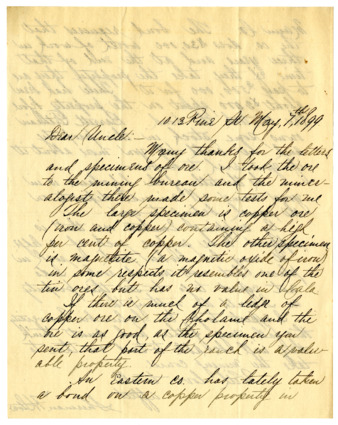 1013 Pine St. May, 7th, 1899
Dear Uncle:-
Many thanks for the letters
and specimens of ore. I took the ore
to the mining bureau and the miner-
alogist there made some tests for me
The large specimen is copper ore
(iron and copper) containing a high
per cent of copper. The other specimen
is magnetite (a magnetic oxide of iron)
in some respects it resembles one of the
tin ores but has no value in
If there is much of a ledge of
copper ore on the and the
ore is as good as the specimen you
sent, that part of the ranch is a valu-
able property.
An Eastern Co. has lately taken
a bond on a copper property in